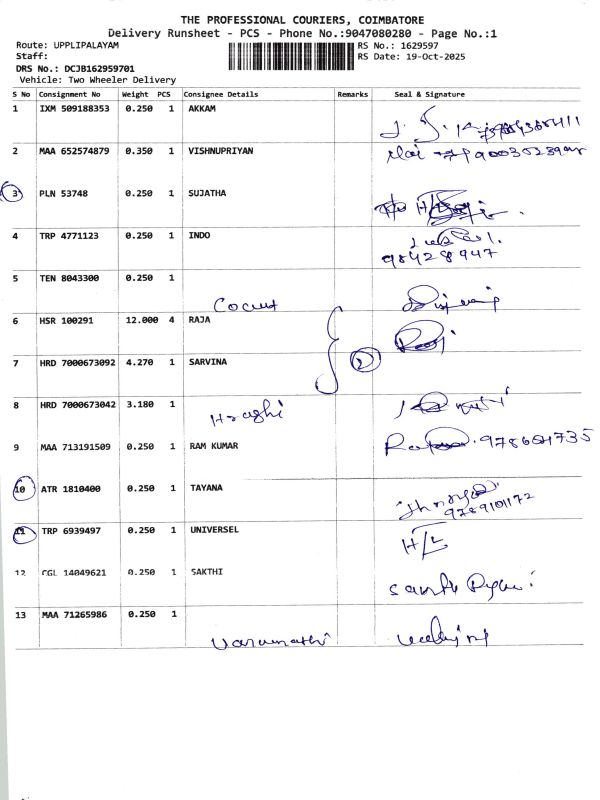 THE PROFESSIONAL COURIERS, COIMBATORE
Delivery Runsheet - PCS - Phone No.:9047080280 - Page No.:1
Route: UPPLIPALAYAM RS No.: 1629597
Staff: RS Date: 19-Oct-2025
DRS No.: DCJB162959701
Vehicle: Two Wheeler Delivery
S No Consignment No Weight PCS Consignee Details Remarks Seal & Signature
1 IXM 509188353 0.250 1 AKKAM
2 MAA 652574879 0.350 1 VISHNUPRIYAN
3 PLN 53748 0.250 1 SUJATHA
4 TRP 4771123 0.250 1 INDO
98428947
5 TEN 8043300 0.250 1
6 HSR 100291 12.000 4 RAJA
7 HRD 7000673092 4.270 1 SARVINA 2
8 HRD 7000673042 3.180 1
9 MAA 713191509 0.250 1 RAM KUMAR
10 ATR 1810400 0.250 1 TAYANA
9789101172
11 TRP 6939497 0.250 1 UNIVERSEL H/L
12 CGL 14049621 0.250 1 SAKTHI
13 MAA 71265986 0.250 1